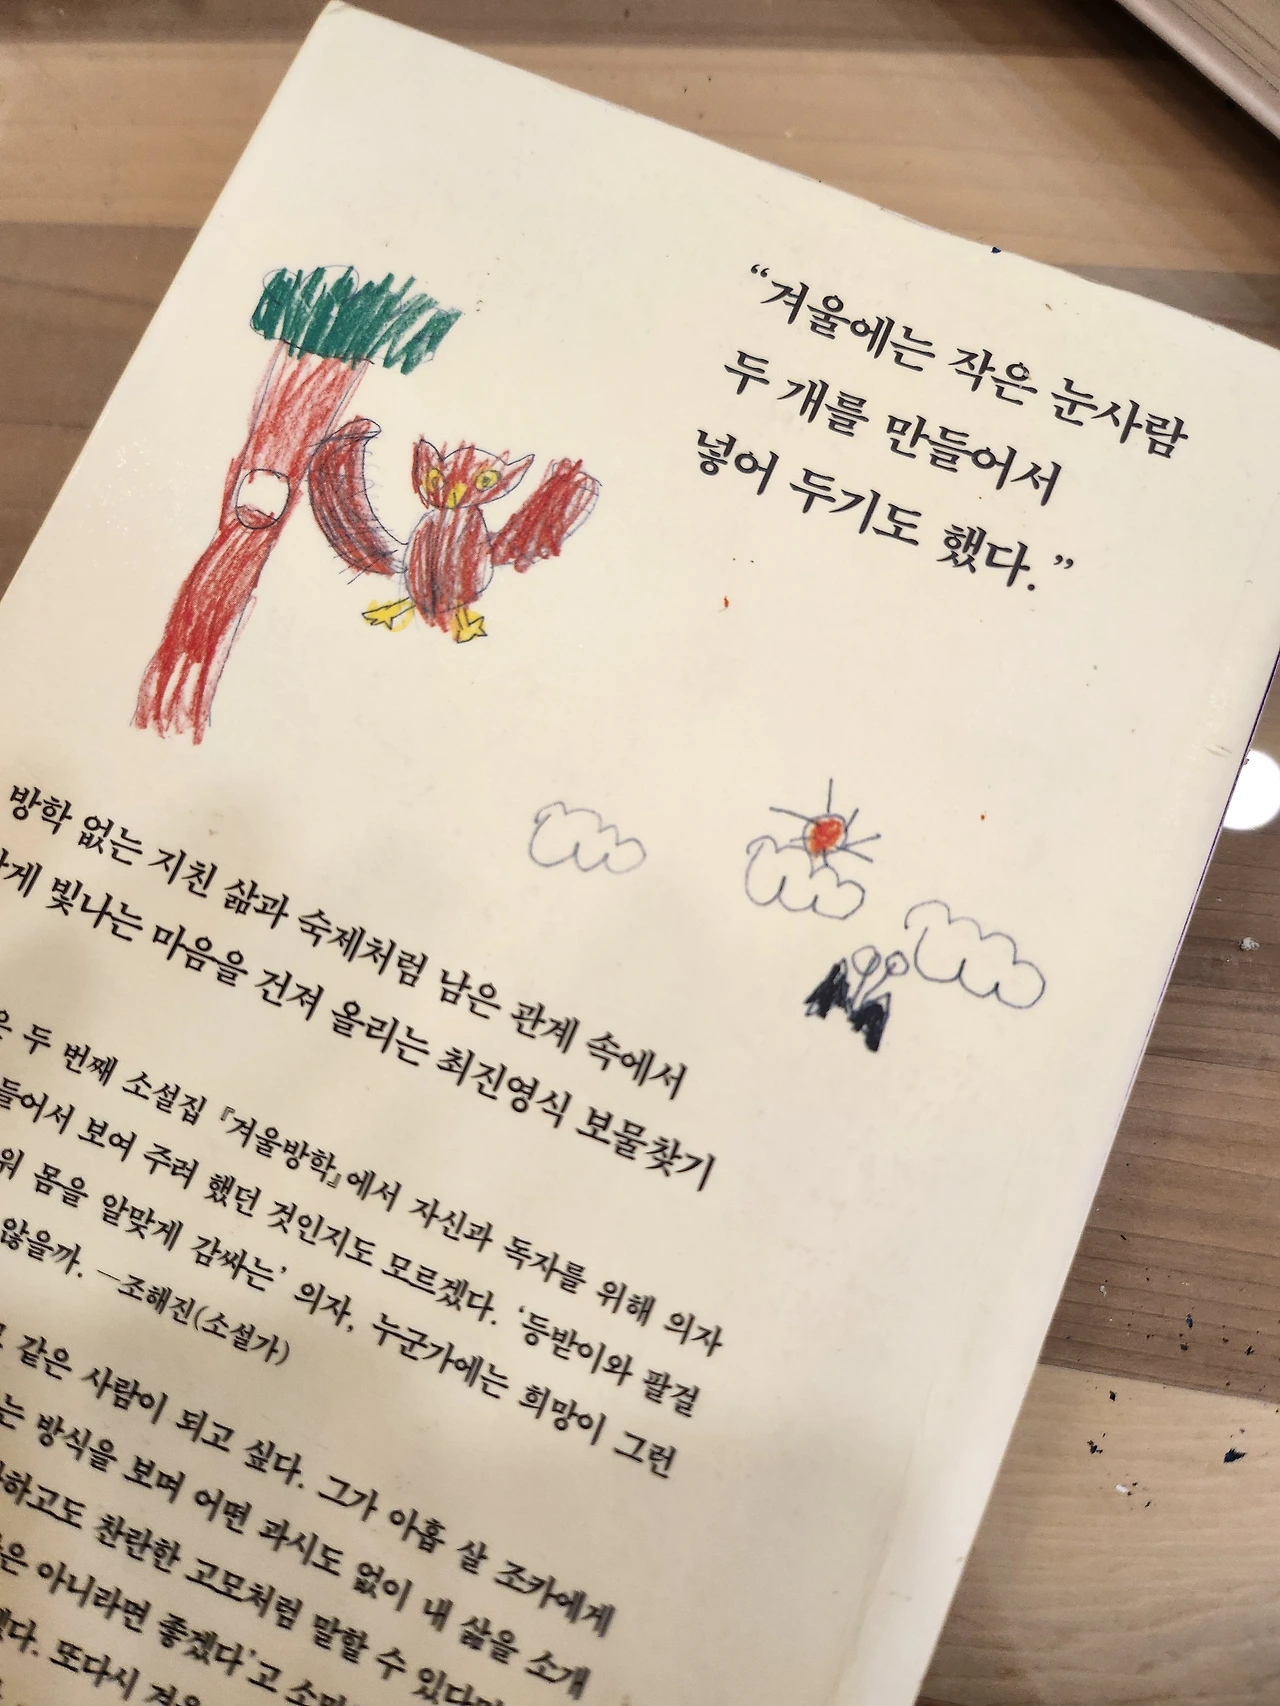 “겨울에는 작은 눈사람
두 개를 만들어서
넣어 두기도 했다.”
방학 없는 지친 삶과 숙제처럼 남은 관계 속에서
빛나는 마음을 건져 올리는 최진영식 보물찾기
두 번째 소설집 『겨울방학』에서 자신과 독자를 위해 의자
들어서 보여 주려 했던 것인지도 모르겠다. ‘등받이와 팔걸
몸을 알맞게 감싸는’ 의자, 누군가에는 희망이 그런
않을까. —조해진(소설가)
같은 사람이 되고 싶다. 그가 아홉 살 조카에게
는 방식을 보며 어떤 과시도 없이 내 삶을 소개
하고도 찬란한 고모처럼 말할 수 있다면
은 아니라면 좋겠다’고
또다시